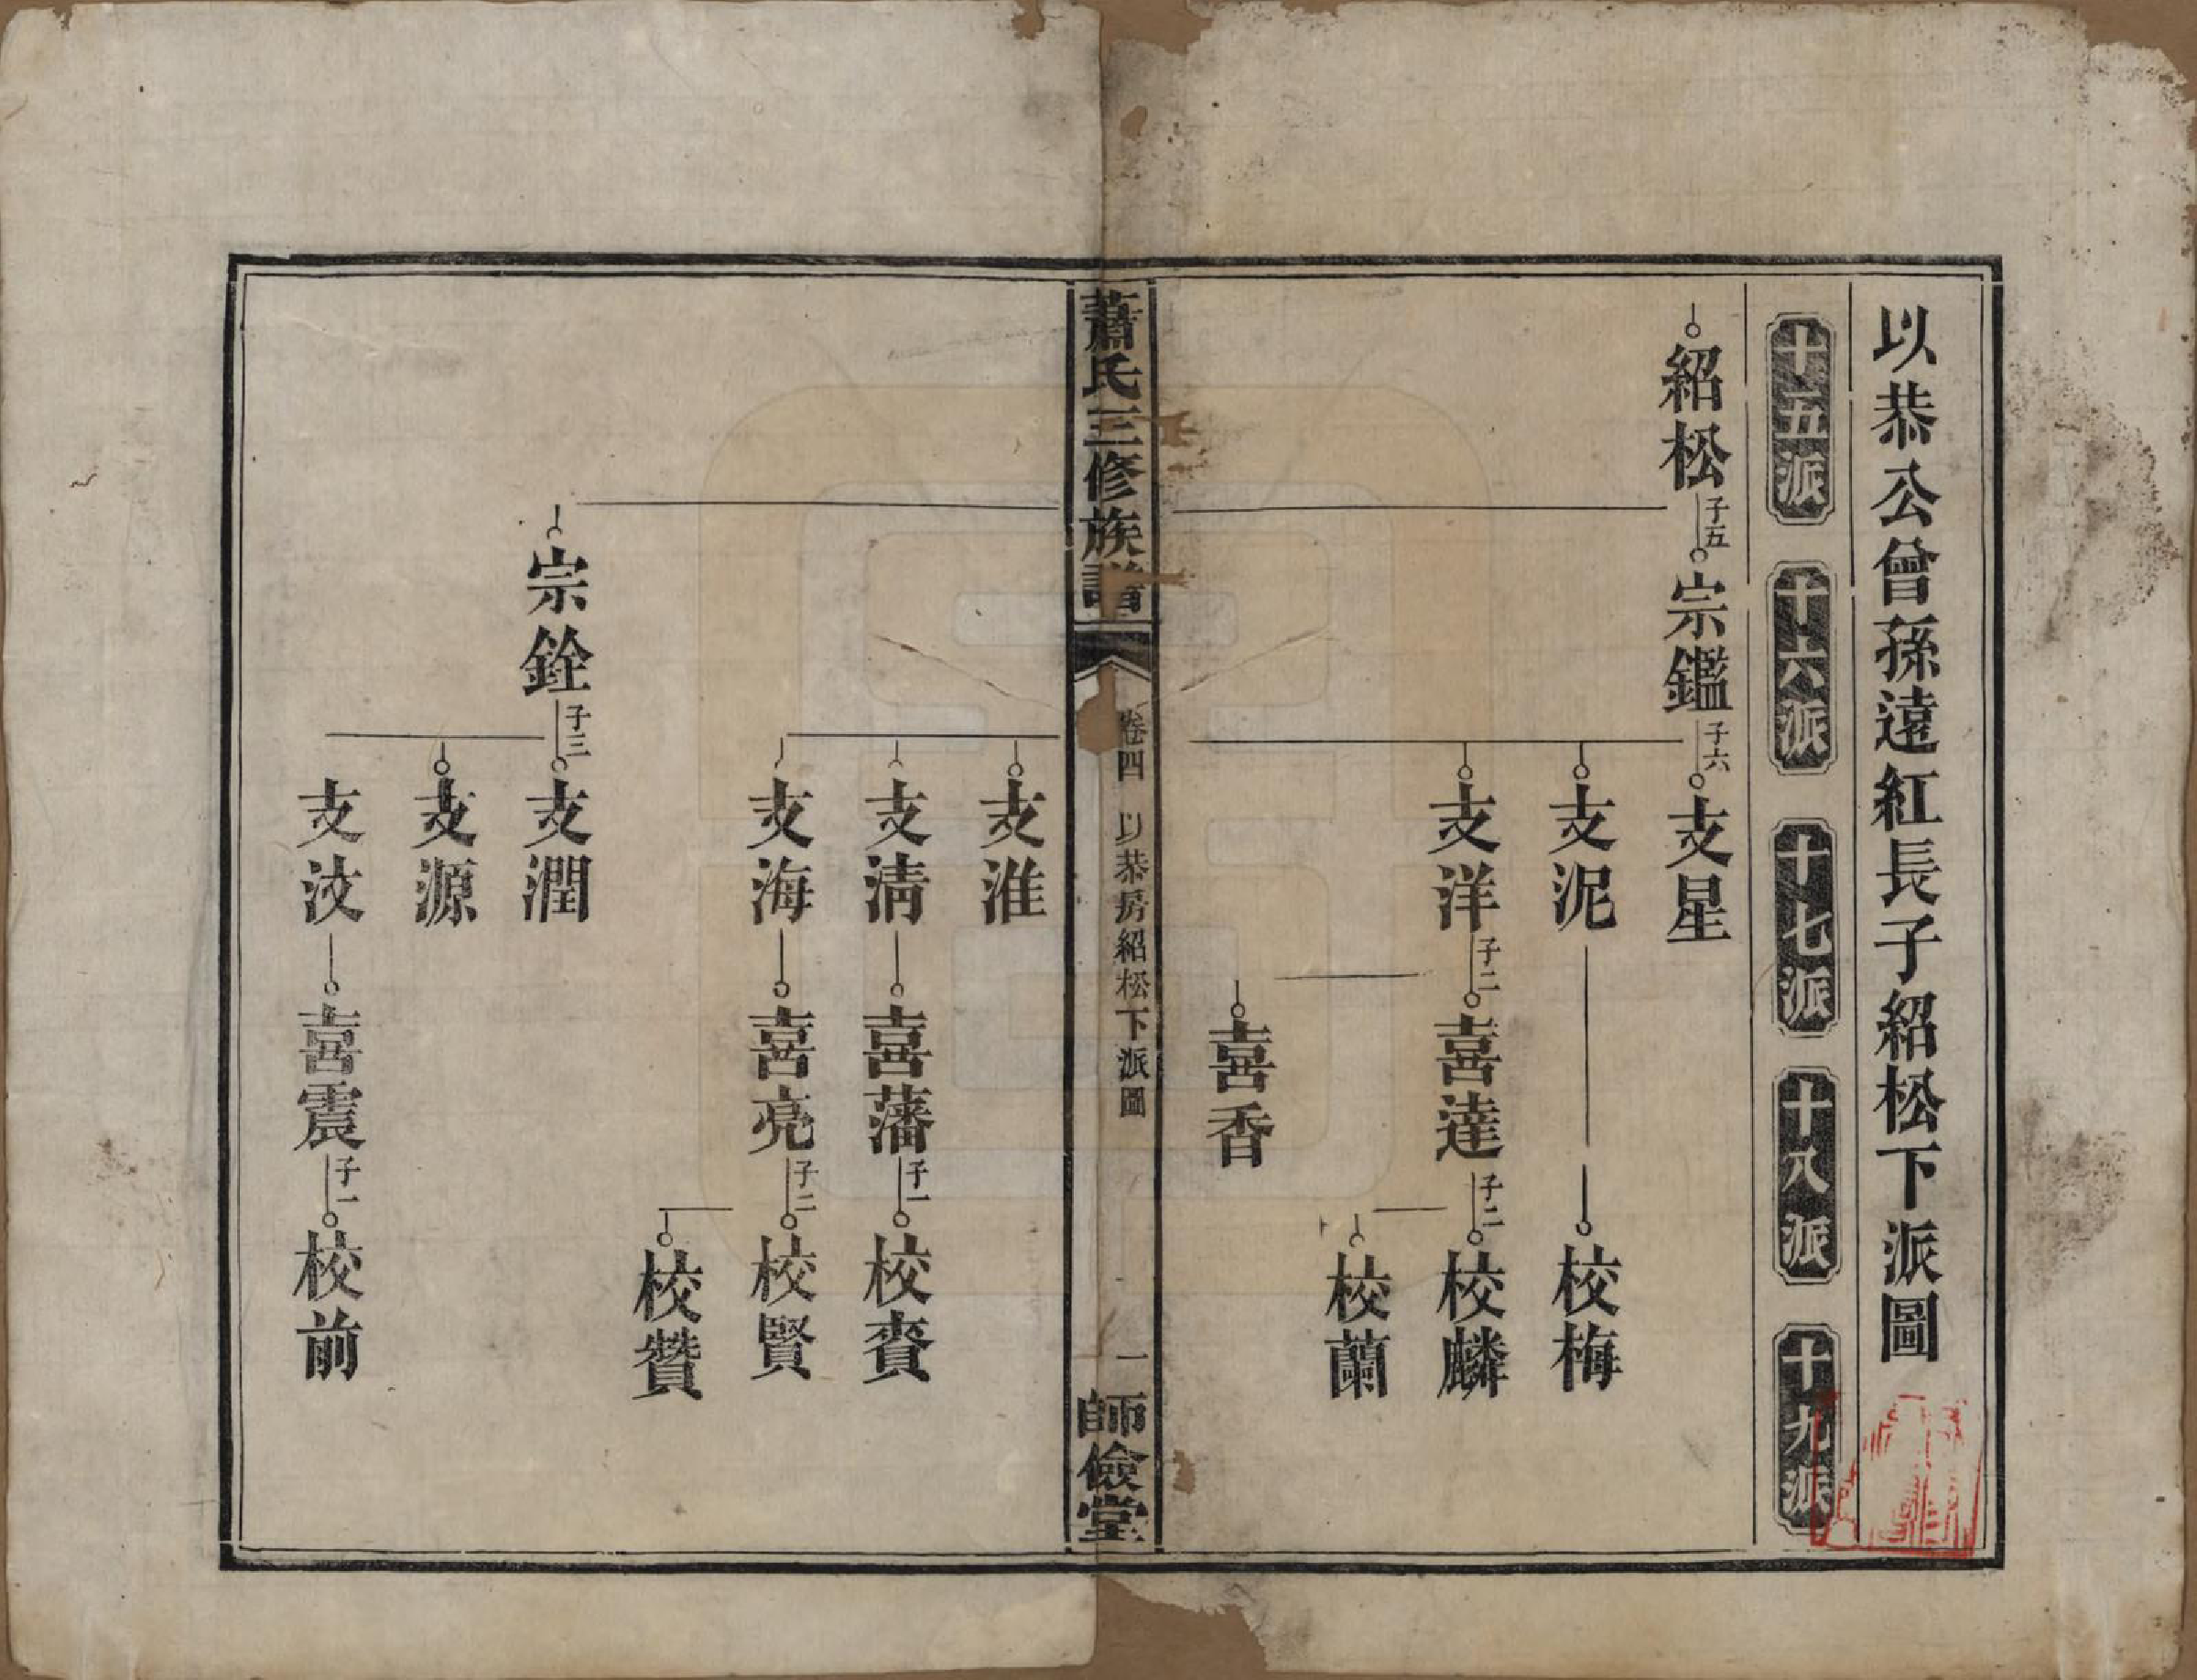 以恭公曾孫遠紅長子紹松下派圖
十五派 十六派 十七派 十八派 十九派
紹松 子五 宗鑑 子六 支星
支泥 校梅
支洋 子二 喜達 子二 校麟
校蘭
喜香
蕭氏三修族譜 卷四 以恭房紹松下派圖 一 師儉堂
支淮
支清 喜藩 子一 校賚
支海 喜亮 子二 校賢
校贊
宗銓 子三 支潤
支源
支汶 喜震 子一 校前